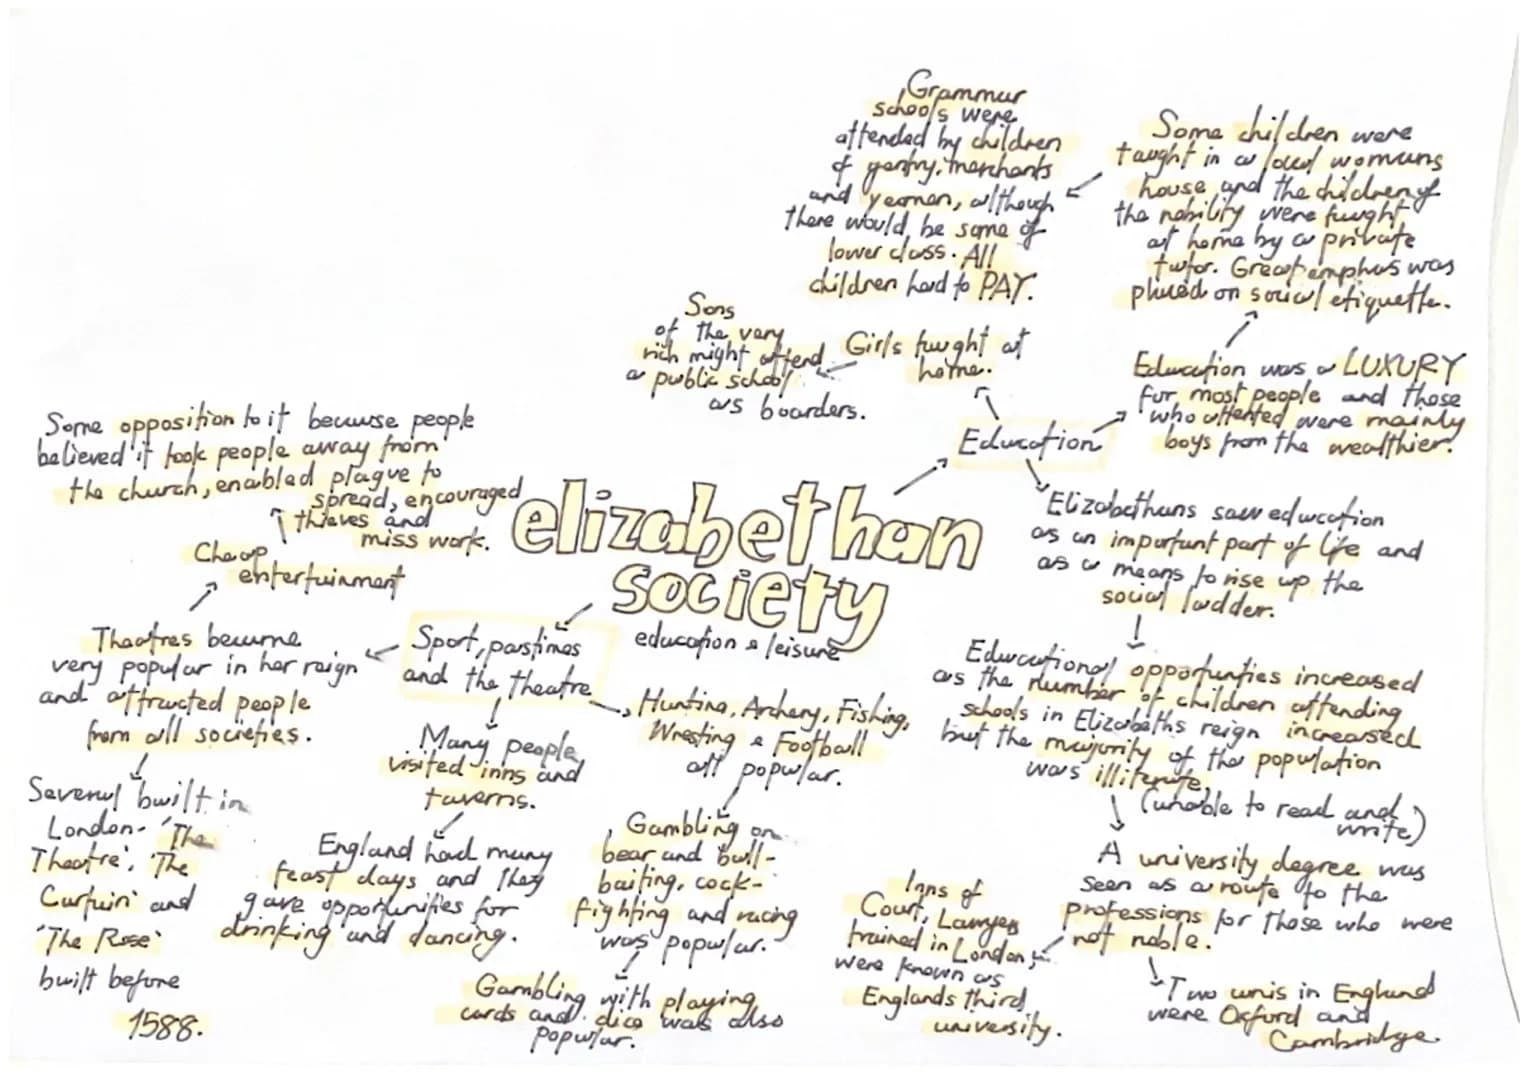 elizabethan
society
education & leisure
Education
Girls taught at
home.
Sons
of the very
rich might attend
a public school
as boarders.
Education was a LUXURY
for most people and those
who attented were mainly
boys from the wealthier.
Some children were
taught in a local womans
house and the children of
the nobility were tuaght
at home by a private
tutor. Great emphas was
placed on social etiquette.
Grammar
schools were
attended by children
of gentry, merchants
and yeomen, although
there would be some of
lower class. All
children had to PAY.
Elizabethans saw education
as an important part of life and
as a means to rise up the
social ladder.
Educational opportunties increased
as the number of children attending
schools in Elizabeths reign increased
but the majority of the population
was illiterate.
(unable to read and
write)
A university degree was
seen as a route to the
professions for those who were
not noble.
Inns of
Court, Lawyers
trained in London,
were known as
Englands third
university.
Two unis in England
were Oxford and
Cambridge.
Sport, pastimes
and the theatre
Theatres became
very popular in her reign
and attracted people
from all societies.
Cheap
entertainment
Some opposition to it because people
believed it took people away from
the church, enabled plague to
spread, encouraged
thieves and
miss work.
Several built in
London- 'The
Theatre', 'The
Curtain' and
'The Rose'
built before
1588.
Many people
visited inns and
taverns.
England had many
feast days and they
gave opportunities for
drinking and dancing.
Hunting, Archery, Fishing,
Wresting & Football
all popular.
Gambling on
bear and bull-
baiting, cock-
fighting and racing
was popular.
Gambling with playing
cards and dice was also
popular.